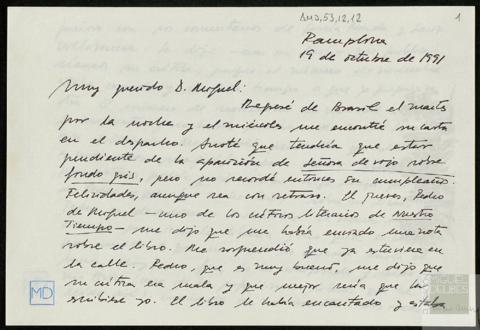 AMD,53,12,12
1
Pamplona
19 de octubre de 1991
Muy querido D. Miguel:
Regresé de Brasil el martes
por la noche y el miércoles me encontré su carta
en el despacho. Anoté que tendría que estar
pendiente de la aparición de Señora de rojo sobre
fondo gris, pero no recordé entonces su cumpleaños.
Felicidades, aunque sea con retraso. El jueves, Pedro
de Miguel — uno de los críticos literarios de Nuestro
Tiempo — me dijo que me había enviado una nota
sobre el libro. Me sorprendió que ya estuviera en
la calle. Pedro, que es muy bueno, me dijo que
su crítica era mala y que mejor sería que la
escribiese yo. El libro le había encantado y estaba
MD
MIGUEL
DELIBES